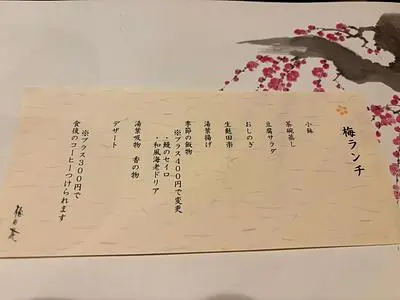 梅ランチ
小鉢
茶碗蒸し
豆腐サラダ
おしのぎ
生麩田楽
湯葉揚げ
季節の飯物
※プラス400円で変更
・鰻のセイロ
・和風海老ドリア
湯葉吸物 香の物
デザート
※プラス300円で
食後のコーヒーつけられます